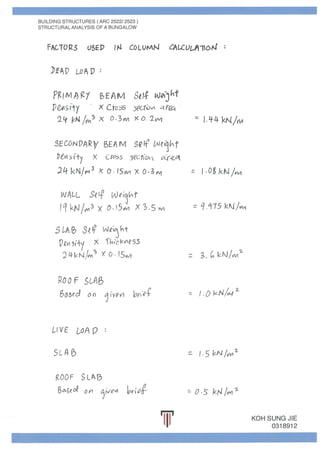 BUILDING STRUCTURES ( ARC 2522/ 2523 )
STRUCTURAL ANALYSIS OF A BUNGALOW
FACTORS USED IN COLUMN CALCULATION :
DEAD LOAD :
PRIMARY BEAM Self weight
Density x Cross section area
24 kN/m³ x 0.3m x 0.2m = 1.44 kN/m
SECONDARY BEAM Self Weight
Density x Cross section area
24 kN/m³ x 0.15m x 0.3m = 1.08 kN/m
WALL Self Weight
19 kN/m³ x 0.15m x 3.5m = 9.975 kN/m
SLAB Self Weight
Density x Thickness
24kN/m³ x 0.15m = 3.6 kN/m²
ROOF SLAB
Based on given brief = 1.0 kN/m²
LIVE LOAD :
SLAB = 1.5 kN/m²
ROOF SLAB
Based on given brief = 0.5 kN/m²
KOH SUNG JIE
0318912